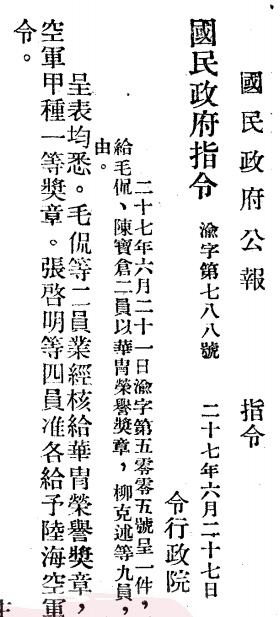 國民政府公報　指令
國民政府指令　渝字第七八八號　二十七年六月二十七日
令行政院
二十七年六月二十一日渝字第五零零五號呈一件，
給毛侃、陳寶倉二員以華冑榮譽獎章，柳克述等九員，
由。
呈表均悉。毛侃等二員業經核給華冑榮譽獎章，
空軍甲種一等獎章。張啓明等四員准各給予陸海空軍
令。